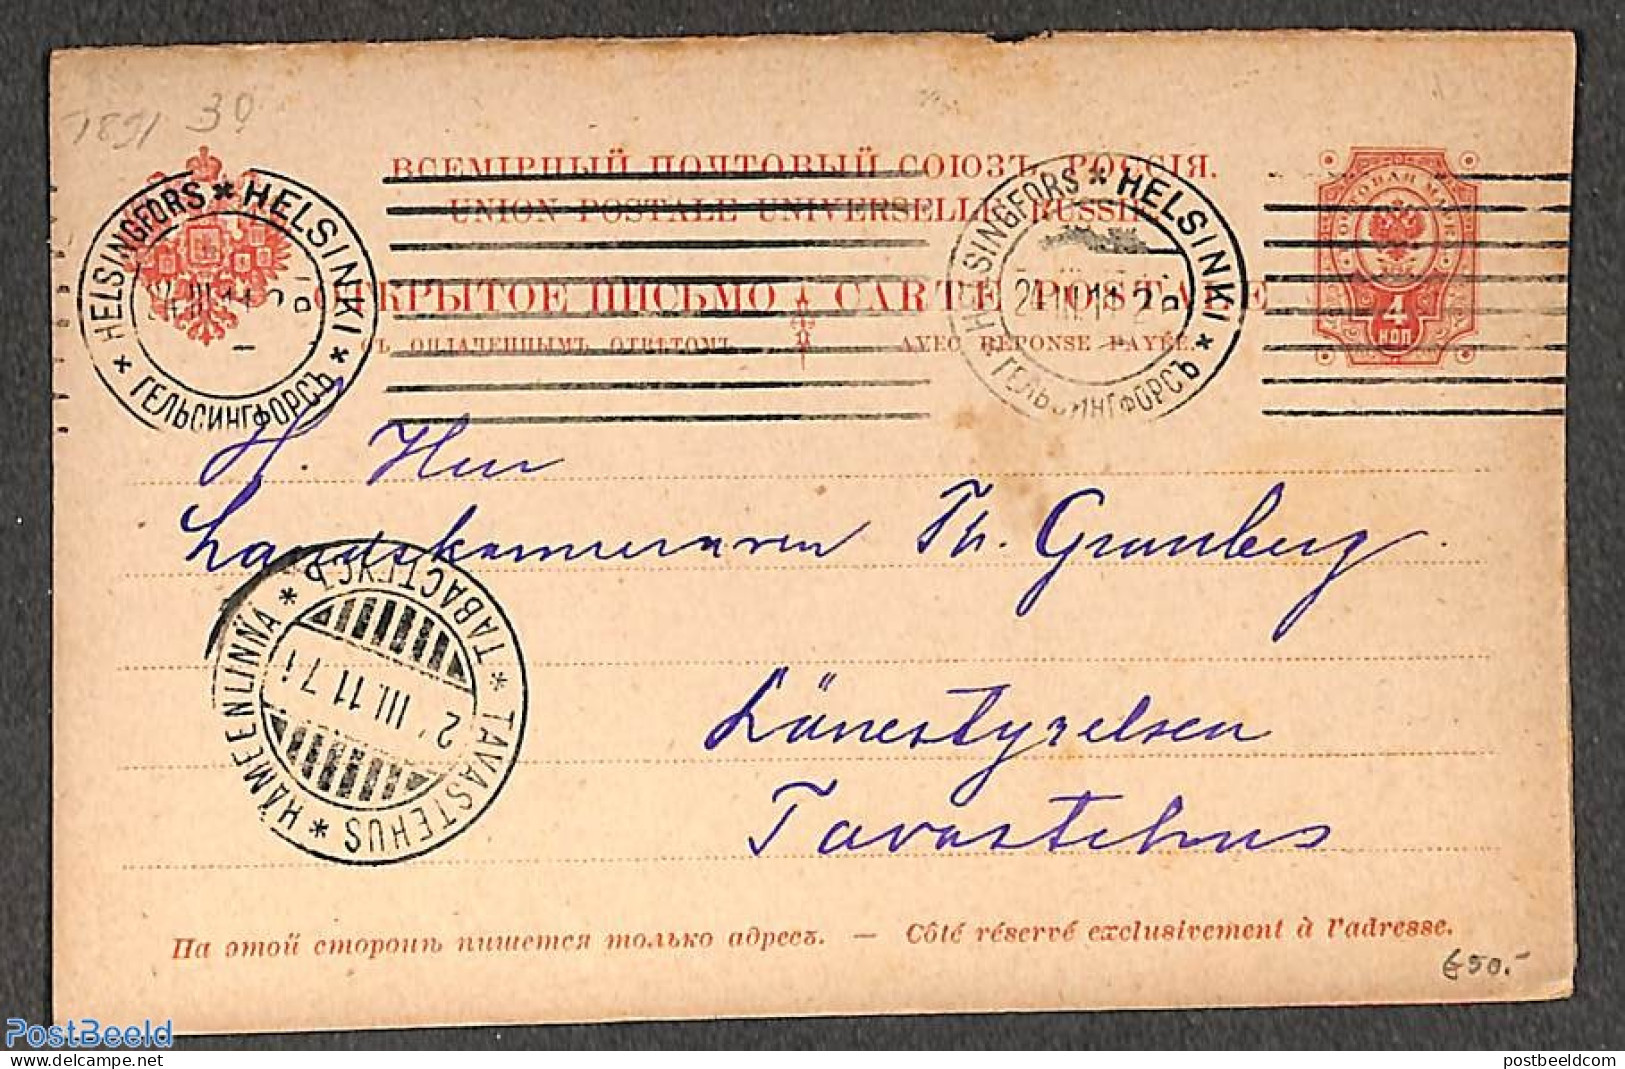 1891 30
ВСЕМІРНЫЙ ПОЧТОВЫЙ СОЮЗЪ. РОССІЯ.
UNION POSTALE UNIVERSELLE. RUSSIE.
ОТКРЫТОЕ ПИСЬМО CARTE POSTALE
СЪ ОПЛАЧЕННЫМЪ ОТВѢТОМЪ. AVEC RÉPONSE PAYÉE.
ПОЧТОВАЯ МАРКА
4
КОП
HELSINGFORS * HELSINKI * ГЕЛЬСИНГФОРСЪ *
HELSINGFORS * HELSINKI * ГЕЛЬСИНГФОРСЪ *
H. Herr
Landskamreraren Th. Grunberg
Länestyrelsen
Tavastehus
HÄMEENLINNA * ТАВАСТГУСЪ * TAVASTEHUS *
III. 11 7 i
На этой сторонѣ пишется только адресъ. — Côté réservé exclusivement à l'adresse.
€50.-
PostBeeld
www.postbeeld.com
postbeeldcom